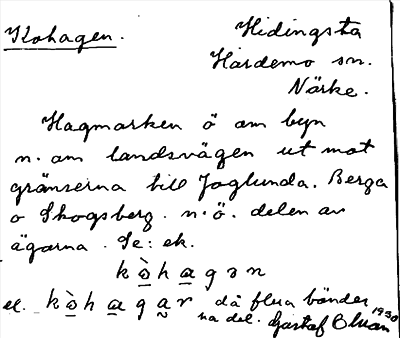 Kohagen.
Hidingsta
Hardemo sn.
Närke.
Hagmarken ö om byn
n. om landsvägen ut mot
gränserna till Joglunda. Berga
o Skogsberg. n.ö. delen av
ägorna. Se: ek.
k ò h a g ə n
el. k ò h a g a r då flera bönder
ha del. Gustaf Ohlson 1930